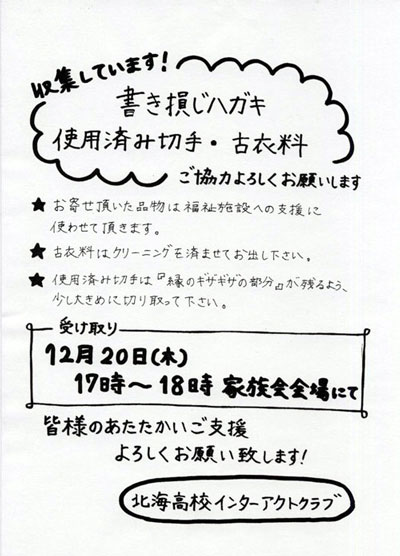 収集しています!
書き損じハガキ
使用済み切手・古衣料
ご協力よろしくお願いします
★ お寄せ頂いた品物は福祉施設への支援に
使わせて頂きます。
★ 古衣料はクリーニングを済ませてお出し下さい。
★ 使用済み切手は『縁のギザギザの部分』が残るよう、
少し大きめに切り取って下さい。
受け取り
12月20日(木)
17時〜18時 家族会会場にて
皆様のあたたかいご支援
よろしくお願い致します!
北海高校インターアクトクラブ